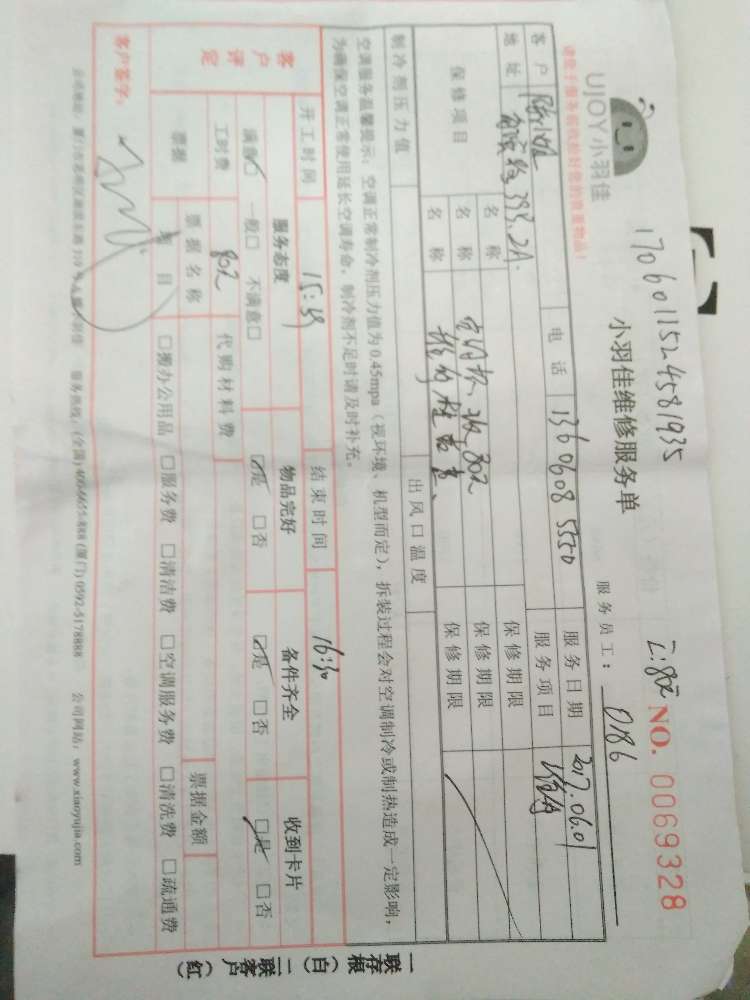 17060115245819 35
UJOY小羽佳
小羽佳维修服务单
工:80元 NO. 0069328
请您于服务前收拾好您的贵重物品!
服务员工: 0186
客户 电话 13606085550 服务日期 2017.06.01
地址 398.2A. 服务项目 维修
保修项目 名称 保修期限
名称 保修期限
名称 保修期限
制冷剂压力值 出风口温度
空调服务温馨提示: 空调正常制冷剂压力值为0.45mpa (视环境、机型而定), 拆装过程会对空调制冷或制热造成一定影响,
为确保空调正常使用延长空调寿命, 制冷剂不足时请及时补充。
开工时间 15:49 结束时间 16:30
客户评定 服务态度 物品完好 备件齐全 收到卡片
满意□ 一般□ 不满意□ □是 □否 □是 □否 □是 □否
工时费 80元 代购材料费
票据 票据名称 票据金额
项目 □搬办公用品 □服务费 □清洁费 □空调服务费 □清洗费 □疏通费
客户签字:
服务热线: (全国) 400-6655-888 (厦门) 0592-5178888 公司网站: www.xiaoyujia.com
一联存根(白) 二联客户(红)